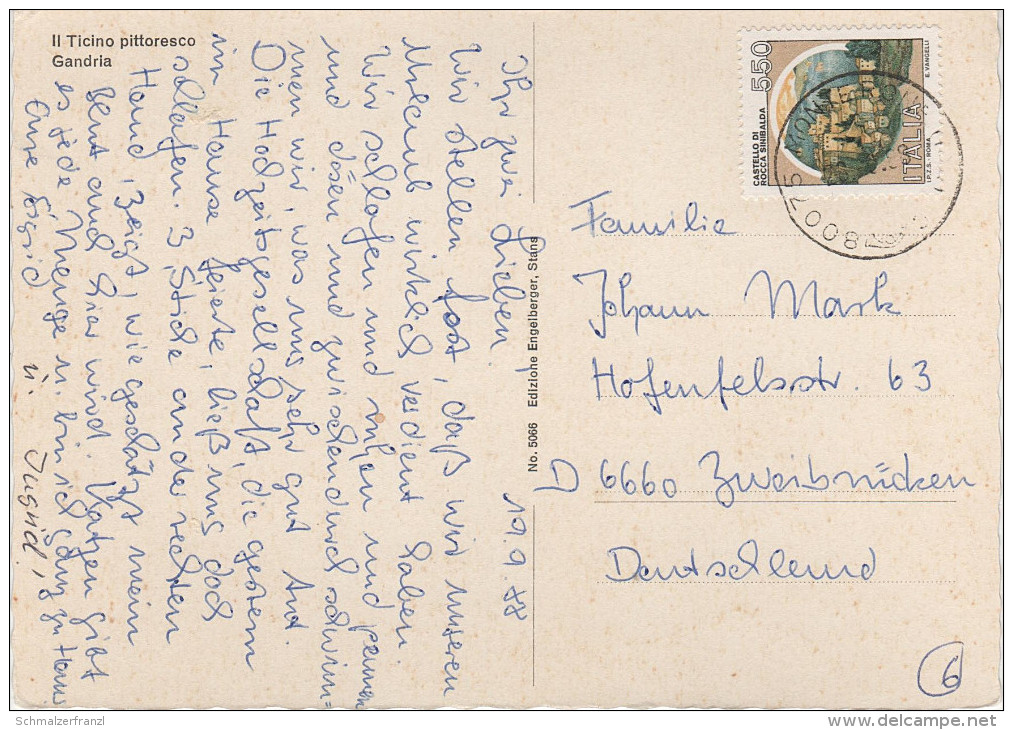 Il Ticino pittoresco
Gandria
19.9.88
Ihr zwei Lieben,
Wir stellen fest, daß wir unseren
Urlaub wirklich verdient haben.
Wir schlafen und ruhen und pennen
und dösen und zwischendurch schwim=
men wir, was uns sehr gut tut.
Die Hochzeitsgesellschaft, die gestern
im Hause feierte, ließ uns doch
schlafen. 3 Stiche an der rechten
Hand, zeigt, wie geschätzt mein
Blut auch hier wird. Katzen gibt
es jede Menge u. bin ich ganz zu Haus
Eure Sigrid u. Ingrid
No. 5066 Edizione Engelberger, Stans
550
CASTELLO DI
ROCCA SINIBALDA
ITALIA
I.P.Z.S. - ROMA
E. VANGELLI
Familie
Johann Mark
Hofenfelsstr. 63
D 6660 Zweibrücken
Deutschland
6
© Schmalzerfranzl
delcampe.net